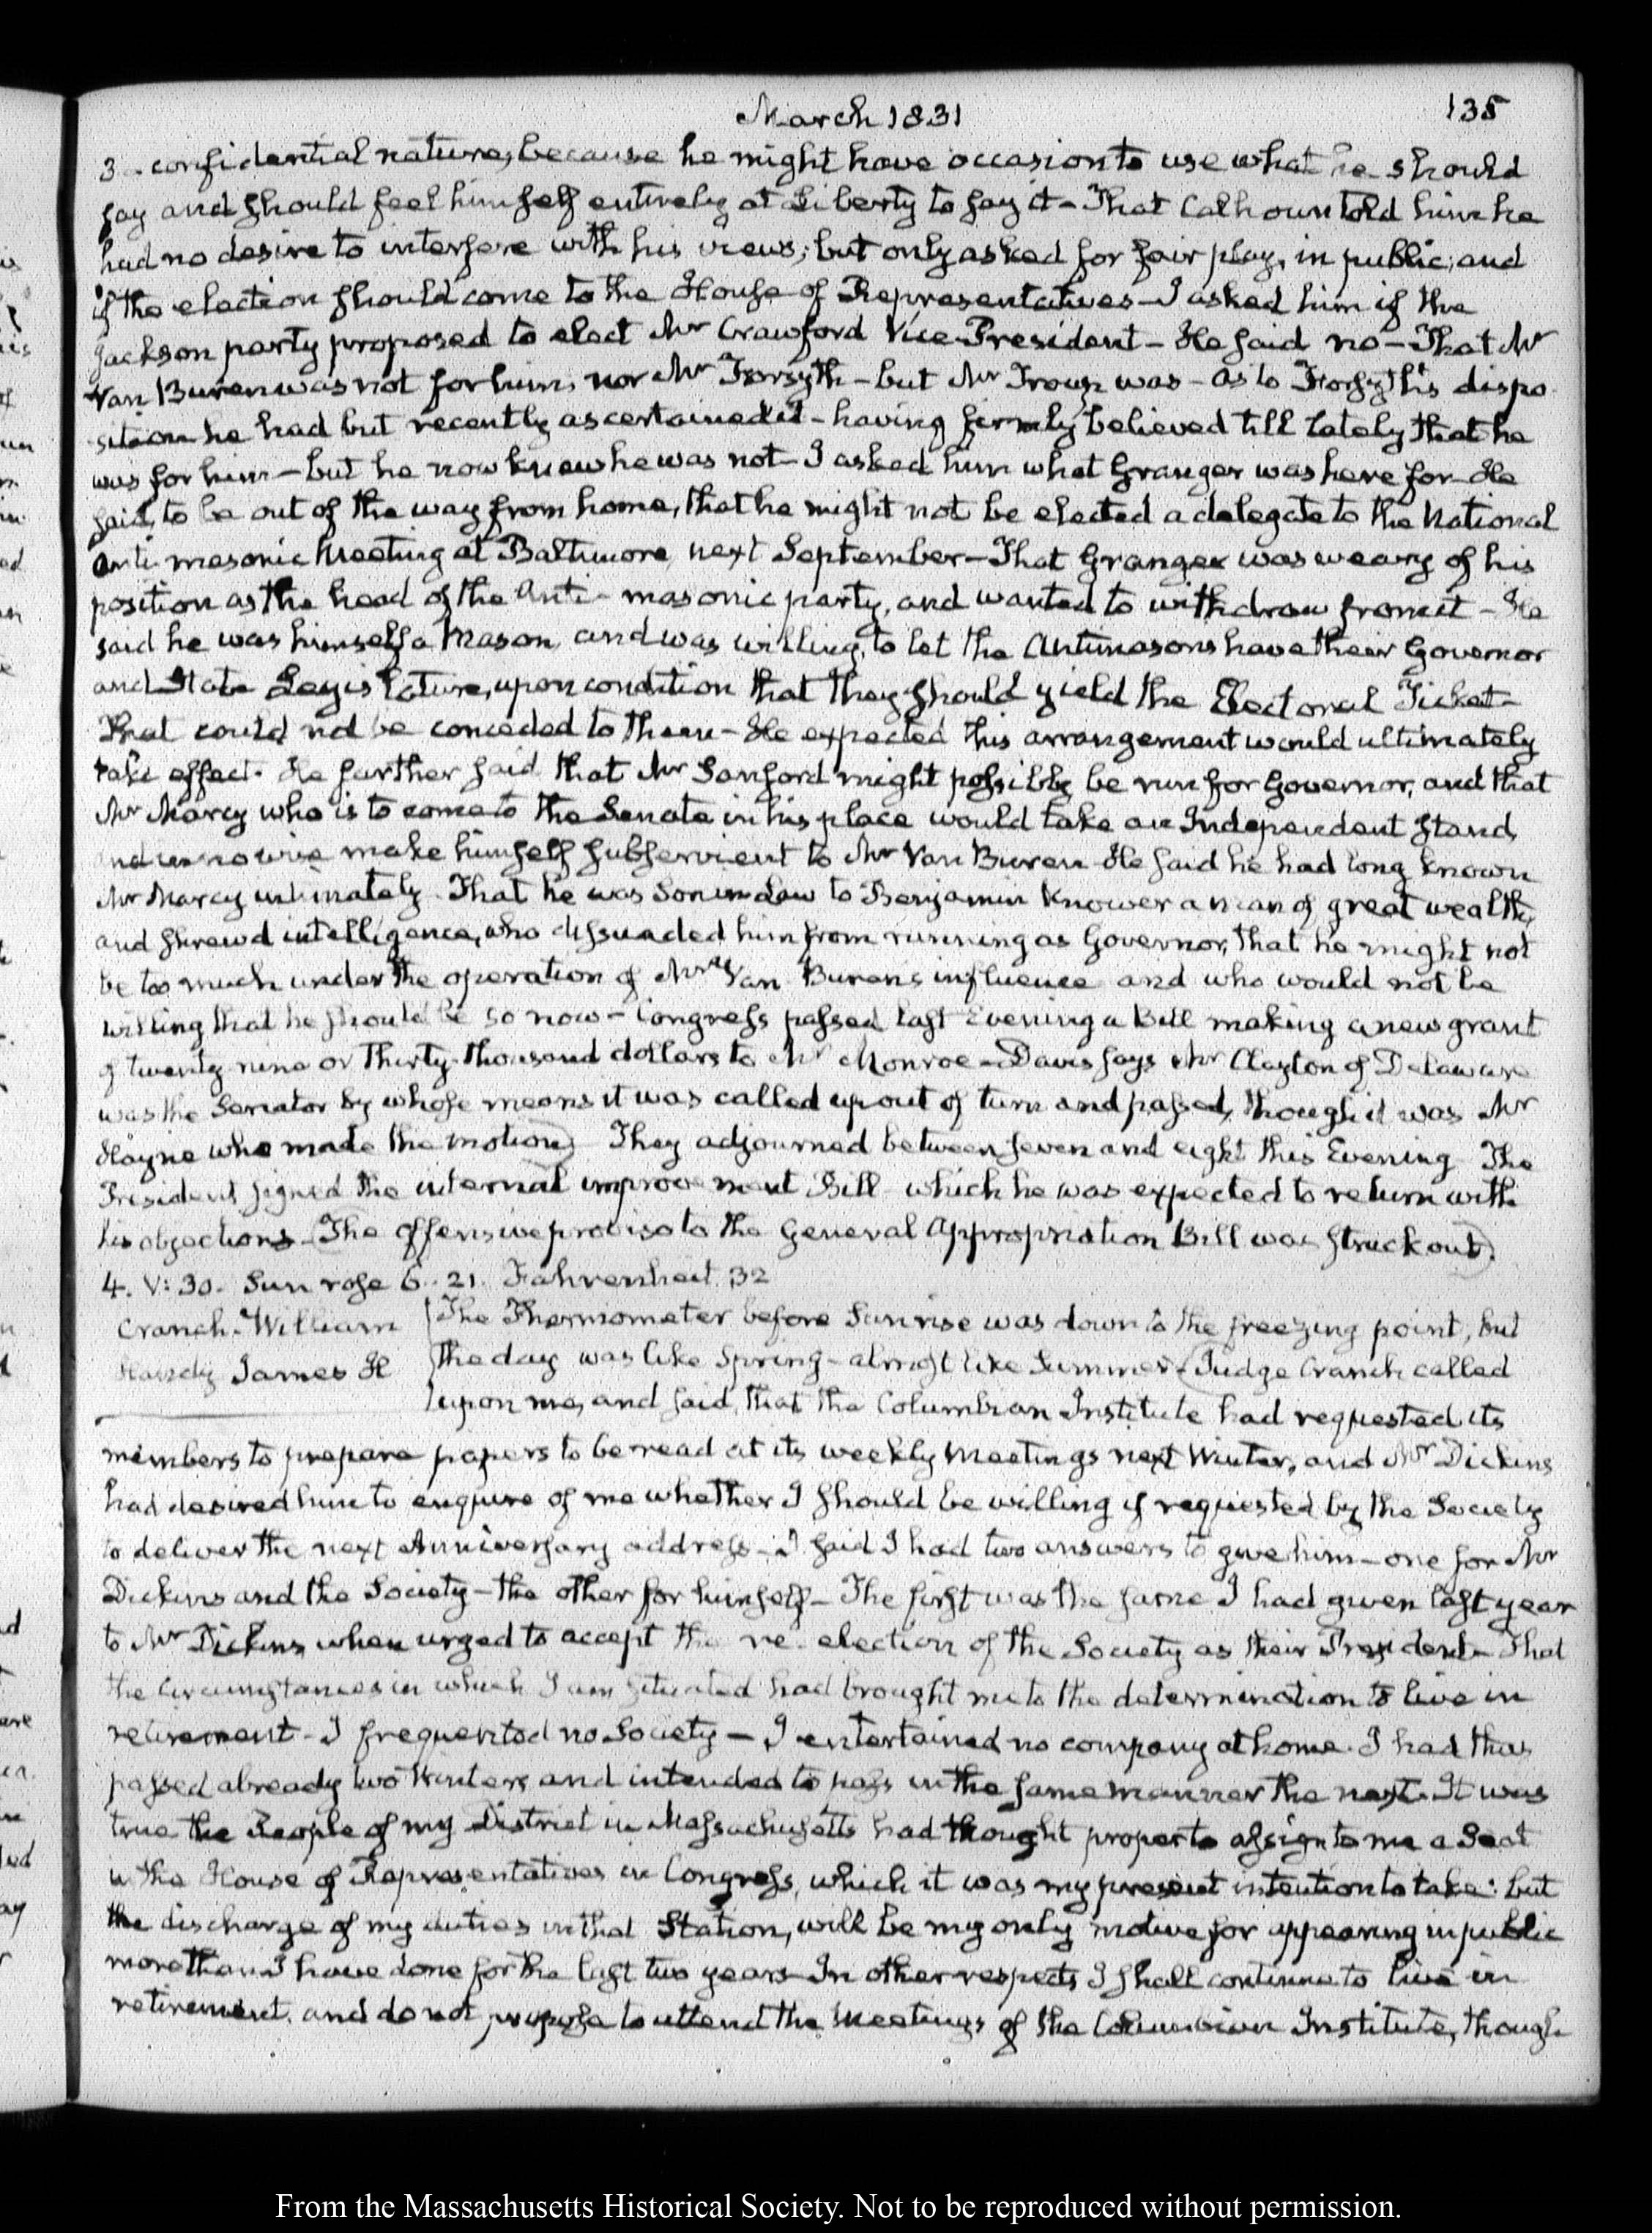 March 1831
135
3. confidential nature, because he might have occasion to use what he should
say and should feel himself entirely at Liberty to say it - That Calhoun told him he
had no desire to interfere with his views; but only asked for fair play, in public; and
if the election should come to the House of Representatives - I asked him if the
Jackson party proposed to elect Mr Crawford Vice-President - He said no - That Mr
Van Buren was not for him, nor Mr Forsyth - but Mr Troup was - as to Forsyth's dispo
sition he had but recently ascertained it - having firmly believed till lately that he
was for him - but he now knew he was not - I asked him what Granger was here for - He
said, to be out of the way from home, that he might not be elected a delegate to the National
Anti masonic Meeting at Baltimore, next September - That Granger was weary of his
position as the head of the Anti-masonic party, and wanted to withdraw from it - He
said he was himself a Mason, and was willing, to let the Antimasons have their Governor
and State Legislature, upon condition that they should yield the Electoral Ticket -
That could not be conceded to them - He expected this arrangement would ultimately
take effect. He further said that Mr Sanford might possibly be run for Governor, and that
Mr Marcy who is to come to the Senate in his place would take an Independent stand,
and in no wise make himself subservient to Mr Van Buren - He said he had long known
Mr Marcy intimately. That he was Son in Law to Benjamin Knower a man of great wealth,
and shrewd intelligence, who dissuaded him from running as Governor, that he might not
be too much under the operation of Mr Van Burens influence and who would not be
willing that he should be so now - Congress passed last Evening a Bill making a new grant
of twenty nine or thirty thousand dollars to Mr Monroe - Davis says Mr Clayton of Delaware
was the Senator by whose means it was called up out of turn and passed, though it was Mr
Hayne who made the motion) They adjourned between seven and eight this Evening The
President signed the internal improvement Bill which he was expected to return with
his objections - The offensive proviso to the General Appropriation Bill was struck out).
4. V:30. Sun rose 6.21. Fahrenheit. 32
Cranch. William
The Thermometer before Sunrise was down to the freezing point, but
James H
the day was like Spring - almost like Summer - (Judge Cranch called
upon me, and said, that the Columbian Institute had requested its
members to prepare papers to be read at its weekly Meetings next Winter, and Mr Dickins
had desired him to enquire of me whether I should be willing if requested by the Society
to deliver the next Anniversary address - I said I had two answers to give him - one for Mr
Dickins and the Society - the other for himself - The first was the same I had given last year
to Mr Dickins, when urged to accept the re-election of the Society as their President - That
the circumstances in which I am situated had brought me to the determination to live in
retirement - I frequented no Society - I entertained no company at home. I had thus
passed already two Winters, and intended to pass in the same manner the next. It was
true the People of my District in Massachusetts had thought proper to assign to me a Seat
in the House of Representatives in Congress, which it was my present intention to take: but
the discharge of my duties in that Station, will be my only motive for appearing in public
more than I have done for the last two years - In other respects I shall continue to live in
retirement, and do not propose to attend the Meetings of the Columbian Institute, though
From the Massachusetts Historical Society. Not to be reproduced without permission.